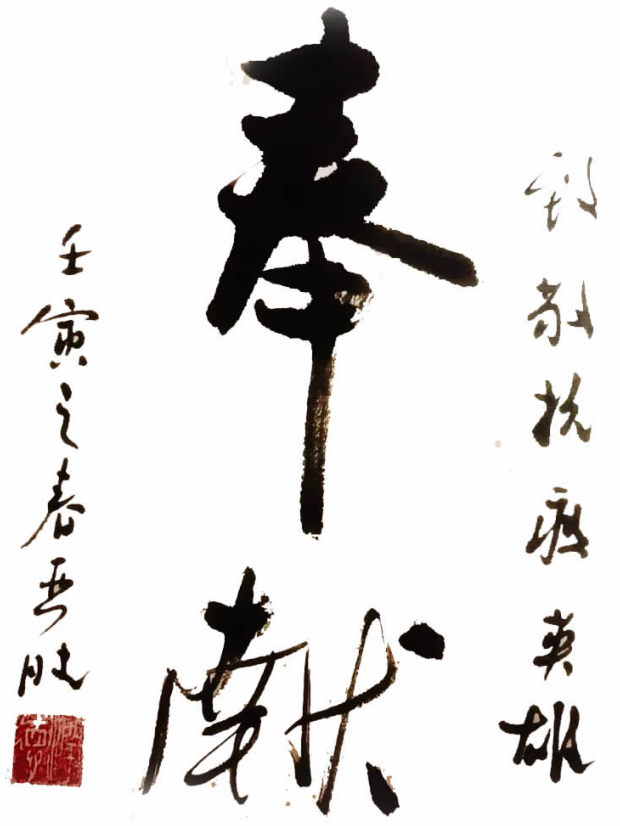 致敬抗疫英雄
奉献
壬寅之春